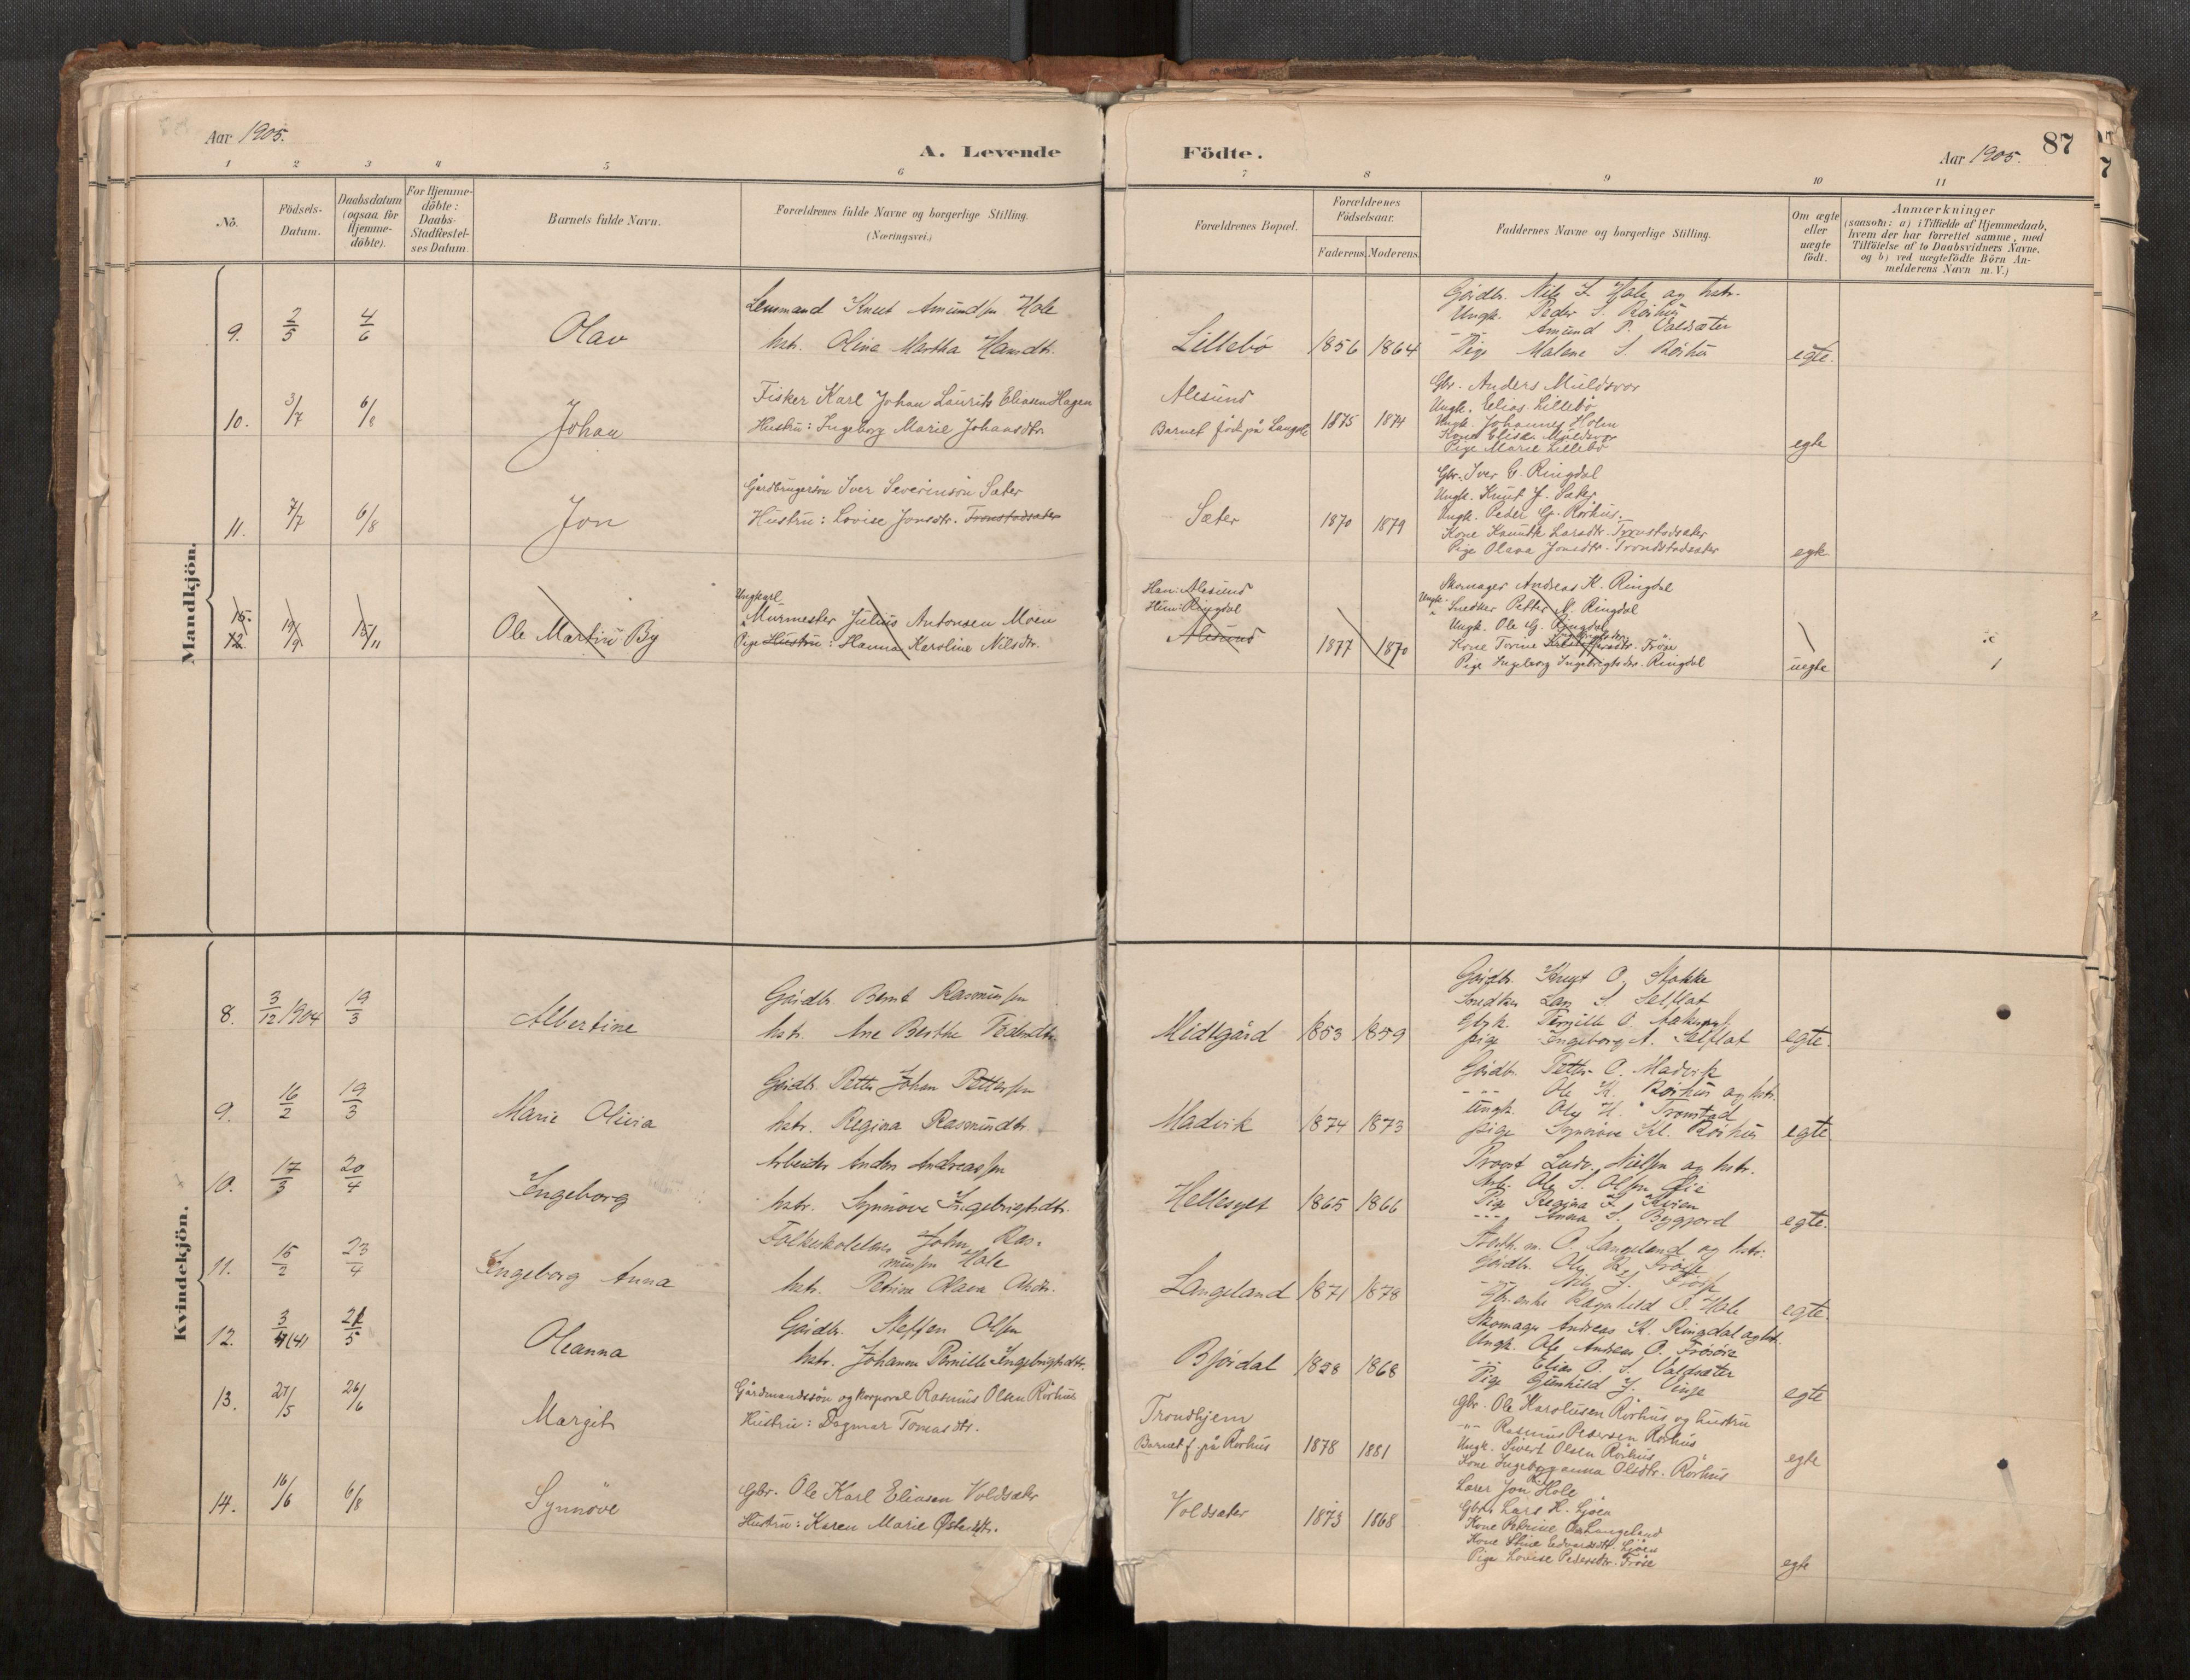 Aar 1905.
A. Levende
Födte.
Aar 1905.
87
1 2 3 4 5 6 7 8 9 10 11
No.
Födsels-
Datum.
Daabsdatum
(ogsaa for
Hjemme-
döbte).
For Hjemme-
döbte:
Daabs-
Stadfæstel-
ses Datum.
Barnets fulde Navn.
Forældrenes fulde Navne og borgerlige Stilling.
(Næringsvei.)
Forældrenes Bopæl.
Forældrenes
Födselsaar.
Faderens. Moderens.
Faddernes Navne og borgerlige Stilling.
Om ægte
eller
uægte
födt.
Anmærkninger
(saasom: a) i Tilfælde af Hjemmedaab,
hvem der har forrettet samme, med
Tilföielse af to Daabsvidners Navne.
og b) ved uægtefödte Börn An-
melderens Navn m. V.)
Mandkjön.
9. 2/5 4/6 Olav
Lensmand Knut Amundsen Hole
hstr. Oline Martha Hansdtr.
Lillebö 1856 1864
Gårdbr. Nils I. Hole og hstr.
Ungk. Peder S. Rörhus
-"- Amund P. Valdsæter
Pige Malene S. Rörhus
egte.
10. 3/7 6/8 Johan
Fisker Karl Johan Laurits Eliasen Hagen
Hustru: Ingeborg Marie Johansdtr.
Alesund
Barnet födt på Langelo
1875 1874
Gbr. Anders Muldsvor
Ungk. Elias Lillebö
Ungk. Johannes Holm
Kone Elise Muldsvor
Pige Marie Lillebö
egte
11. 7/7 6/8 Jon
Gardbrugersön Iver Severinsön Sæter
Hustru: Lovise Jonsdtr. Tronstadsæter
Sæter 1870 1879
Gbr. Iver E. Ringdal
Ungk. Knut J. Sæter
Ungk. Peder G. Rörhus.
Kone Knutte Larsdtr. Tronstadsæter
Pige Olava Jonsdtr. Trondstadsæter
egte
15.
12. 19/9 15/11 Ole Martin By
Ungkarl
Murmester Julius Antonsen Moen
Pige Hustru: Hanna Karoline Nilsdtr.
Han: Alesund
Hun: Ringdal
Alesund
1877 1870
Skomager Andreas K. Ringdal
Ungk. Snedker Petter M. Ringdal
Ungk. Ole G. Ringdal
Kone Torine Fröse
Pige Ingeborg Ingebrigtsdtr. Ringdal
uegte
Kvindekjön.
8. 3/12 1904 19/3 Albertine
Gårdbr. Bernt Rasmussen
hstr. Ane Berthe
Midtgård 1853 1859
Gårdbr. Knut O. Stokke
Snedker Lars S. Selflat
Gbrk. Pernille O.
pige Ingeborg A. Selflat
egte.
9. 16/2 19/3 Marie Olivia
Gårdbr. Petter Johan Pettersen
hstr. Regina Rasmusdtr.
Madvik 1874 1873
Gårdbr. Petter O. Madvik
-"- Ole K. Rörhus og hstr.
Ungk. Ole H. Tronstad
pige Synnöve Kl. Rörhus
egte
10. 17/3 20/4 Ingeborg
Arbeider Anders Andreassen
hstr. Synnöve Ingebrigtsdtr.
Hellesylt 1865 1866
Provst Ludv. Nielsen og hstr.
Arb. Ole S. Olsen Öie
Pige Regina I. Kvien
-"- Anna S. Byggjord
egte.
11. 15/2 23/4 Ingeborg Anna
Folkeskolelærer John Ras-
mussen Hole
hstr. Petrine Olava Olsdtr.
Langeland 1871 1878
Storth. m. O. Langeland og hstr.
Gårdbr. Ole K. Fröise
-"- Nils J. Fröise
Gbr.enke Ragnhild O. Hole
egte.
12. 3/4 (4) 21/5 Oleanna
Gårdbr. Steffen Olsen
hstr. Johanne Pernille Ingebrigtsdtr.
Björdal 1858 1868
Skomager Andreas K. Ringdal og hstr.
Ungk. Ole Andreas O. Fröise
-"- Elias O. S. Valdsæter
Pige Gunhild J. Vinje
egte
13. 27/5 26/6 Margit
Gårdmandssön og korporal Rasmus Olsen Rörhus
Hustru: Dagmar Tomasdtr.
Trondhjem
Barnet f. på Rörhus
1878 1881
Gbr. Ole Karolusen Rörhus og hustru
-"- Rasmus Pedersen Rörhus
Ungk. Sivert Olsen Rörhus
Kone Ingeborganna Olsdtr. Rörhus
egte
14. 16/6 6/8 Synnöve
Gbr. Ole Karl Eliasen Voldsæter
Hustru: Karen Marie Østendtr.
Voldsæter 1873 1868
Lærer Jon Hole
Gbr. Lars K. Ljöen
Kone Petrine O. Langeland
Kone Stine Edvardsdtr. Ljöen
Pige Lovise Pedersdtr. Fröse
egte